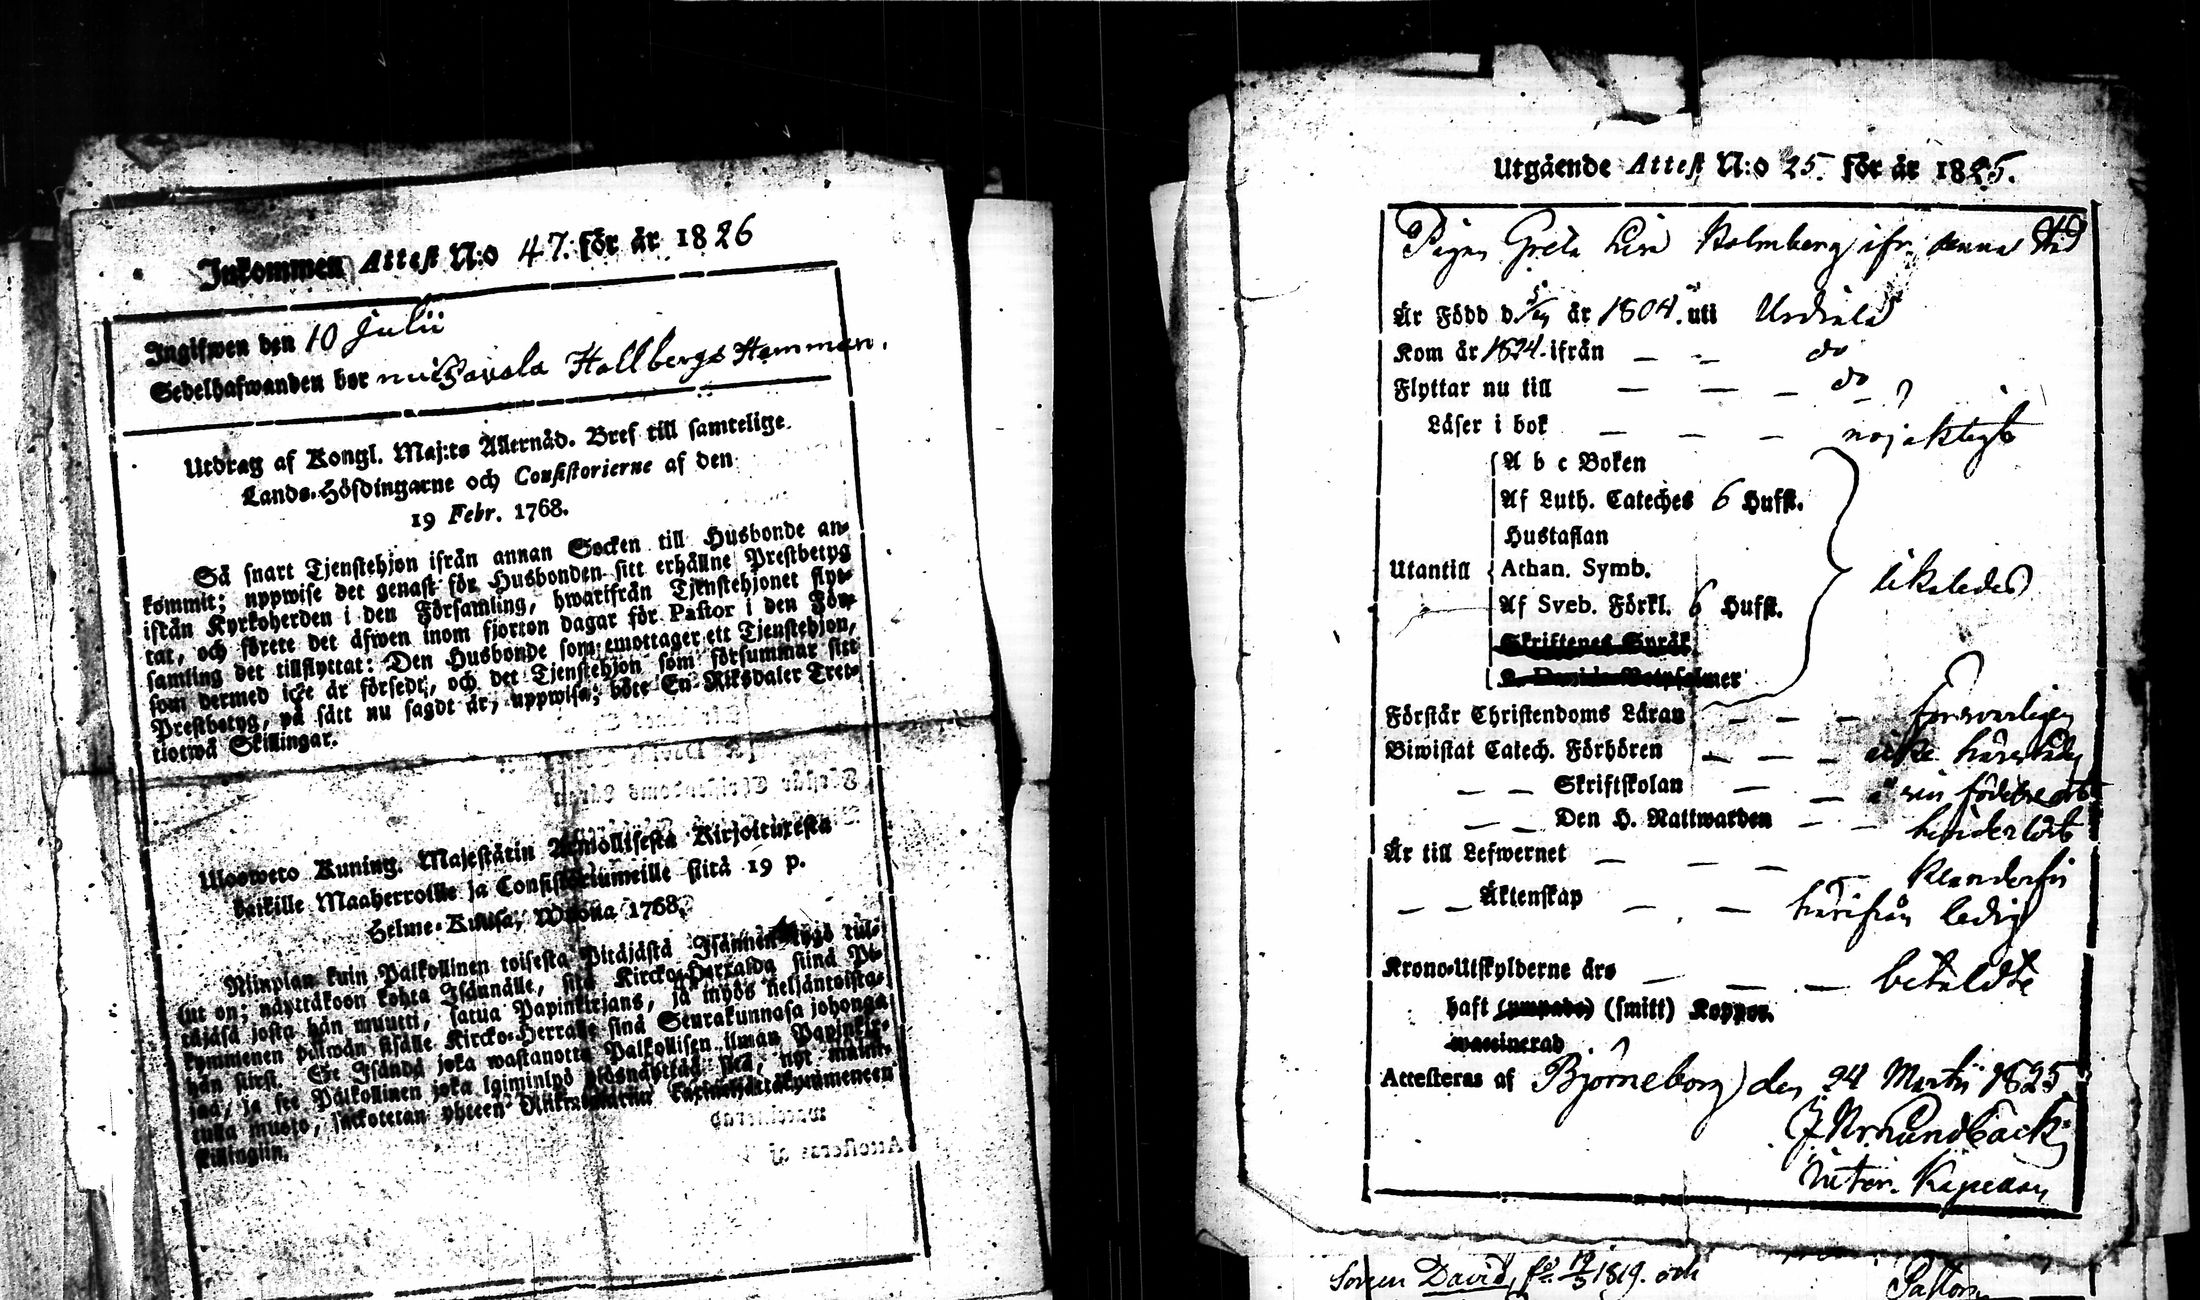 Inkommen Attest N:o 47. för år 1826
Ingifwen den 10 Julii
Sedelhafwanden bor Hallbergs Hemman.
Utdrag af Kongl. Maj:ts Allernåd. Bref till samtelige
Lands-Höfdingarne och Consistorierne af den
19 Febr. 1768.
Så snart Tjenstehjon ifrån annan Socken till Husbonde an-
kommit; uppwise det genast för Husbonden sitt erhållne Prestbetyg
ifrån Kyrkoherden i den Församling, hwarifrån Tjenstehjonet flyt-
tat, och förete det äfwen inom fjorton dagar för Pastor i den För-
samling det tillflyttat: Den Husbonde som emottager ett Tjenstehjon,
som dermed icke är försedt, och det Tjenstehjon som försummar sitt
Prestbetyg, på sätt nu sagdt är, uppwisa; böte En Riksdaler Tret-
tiotwå Skillingar.
Ulosweto Kuning. Majestätin Armollisesta Kirjoituxesta
kaikille Maaherroille ja Consistoriumeille siitä 19 p.
Helme-Kuusa, Wuona 1768.
Niinpian kuin Palkollinen toisesta Pitäjästä Isännän tygö tul-
lut on; näyttäkoon kohta Isännälle, sitä Kircko-Herralda siinä Pi-
täjäsä josta hän muutti, saatua Papinkirjans, ja myös neljäntoista-
kymmenen päiwän sisälle Kircko-Herralle siinä Seurakunnasa johonga
hän siirsi. Se Isändä joka wastanotta Palkollisen ilman Papinkir-
jaa, ja se Palkollinen joka laiminlyö ylösnäyttää sitä, nyt mainit-
tulla muoto, sackotetan yhteen Riikintalarin Kaxineljättäkymmeneen
killingiin.
Utgående Attest N:o 25. för år 1825.
Pigan Greta Lisa Holmberg ifr.
Är Född d. år 1804. uti Urdiala
Kom år 1824. ifrån — — do
Flyttar nu till — — — do
Läser i bok — — — nöjaktigt
A b c Boken
Af Luth. Cateches 6 Hufst.
Hustaflan
Utantill Athan. Symb. likaledes
Af Sveb. Förkl. 6 Hufst.
Skriftenes Språk
Förstår Christendoms Läran — — — försvarligen
Biwistat Catech. Förhören — — —
— — Skriftskolan — — i sin födelseort
— — Den H. Nattwarden — —
Är till Lefwernet — — — — klanderfri
— — Äktenskap — — härifrån ledig
Krono-Utskylderne äro — — — betaldte
haft (ympade) (smitt) Koppor.
waccinerad
Attesteras af Björneborg den 24 Martii 1825
Sonen David, fö. 1819. och
Pastor